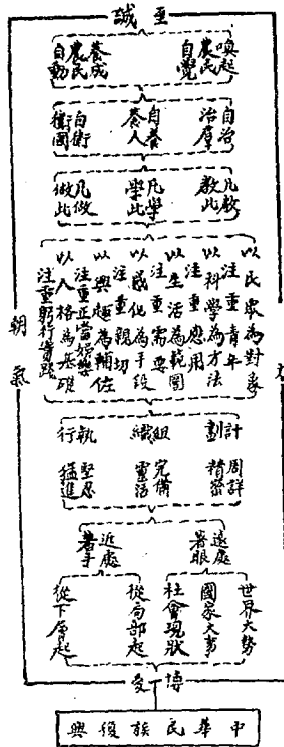 至誠
喚起
農民
自覺
養成
農民
自動
自治
治羣
自養
養人
自衛
衛國
凡教
教此
凡學
學此
凡做
做此
以民眾為對象
注重青年
以科學為方法
注重應用
以生活為範圍
注重需要
以感化為手段
注重親切
以興趣為輔佐
注重正當娛樂
以人格為基礎
注重躬行實踐
朝氣
計劃
組織
執行
周詳
精密
完備
靈活
堅忍
猛進
遠處
著眼
近處
著手
世界大勢
國家大事
社會現狀
從局部起
從下層起
博愛
中華民族復興